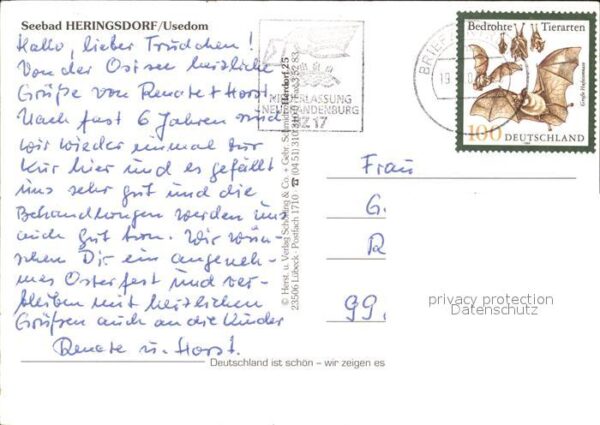 Seebad HERINGSDORF/Usedom
Hallo, lieber Trudchen!
Von der Ostsee herzliche
Grüße von Renate + Horst.
Nach fast 6 Jahren sind
wir wieder einmal zur
Kur hier und es gefällt
uns sehr gut und die
Behandlungen werden uns
auch gut tun. Wir wün-
schen Dir ein angeneh-
mes Osterfest und ver-
bleiben mit herzlichen
Grüßen auch an die Kinder
Renate u. Horst.
NIEDERLASSUNG
NEUBRANDENBURG
BZ 17
© Herst. u. Verlag Schöning & Co. + Gebr. Schmidt
23506 Lübeck · Postfach 1710 ☎ (0451) 31
BRIEF
19
Bedrohte Tierarten
Große Hufeisennase
100 DEUTSCHLAND
Frau
G.
R
99.
privacy protection
Datenschutz
Deutschland ist schön – wir zeigen es